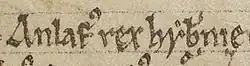 Anlafꝰ rex hyb̾nie